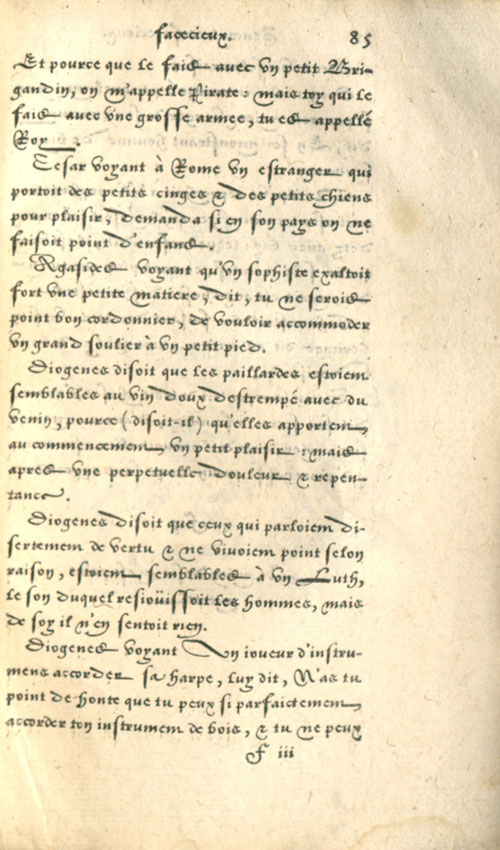 facecieux. 85
Et pource que le fais avec vn petit Bri-
gandin, on m'appelle Pirate: mais toy qui le
fais avec vne grosse armee, tu es appellé
Roy.
Cesar voyant à Rome vn estranger qui
portoit des petits cinges & des petits chiens
pour plaisir, demanda si en son pays on ne
faisoit point d'enfans.
Agasides voyant qu'vn sophiste exaltoit
fort vne petite matiere, dit, tu ne serois
point bon cordonnier, de vouloir accommoder
vn grand soulier à vn petit pied.
Diogenes disoit que les paillardes estoient
semblables au vin doux destrempé avec du
venin, pource (disoit-il) qu'elles apportent
au commencement vn petit plaisir: mais
apres vne perpetuelle douleur & repen-
tance.
Diogenes disoit que ceux qui parloient di-
sertement de vertu & ne vivoient point selon
raison, estoient semblables à vn Luth,
le son duquel resiouïssoit les hommes, mais
de soy il n'en sentoit rien.
Diogenes voyant Vn ioueur d'instru-
mens accorder sa harpe, luy dit, N'as tu
point de honte que tu peux si parfaictement
accorder ton instrument de bois, & tu ne peux
f iii